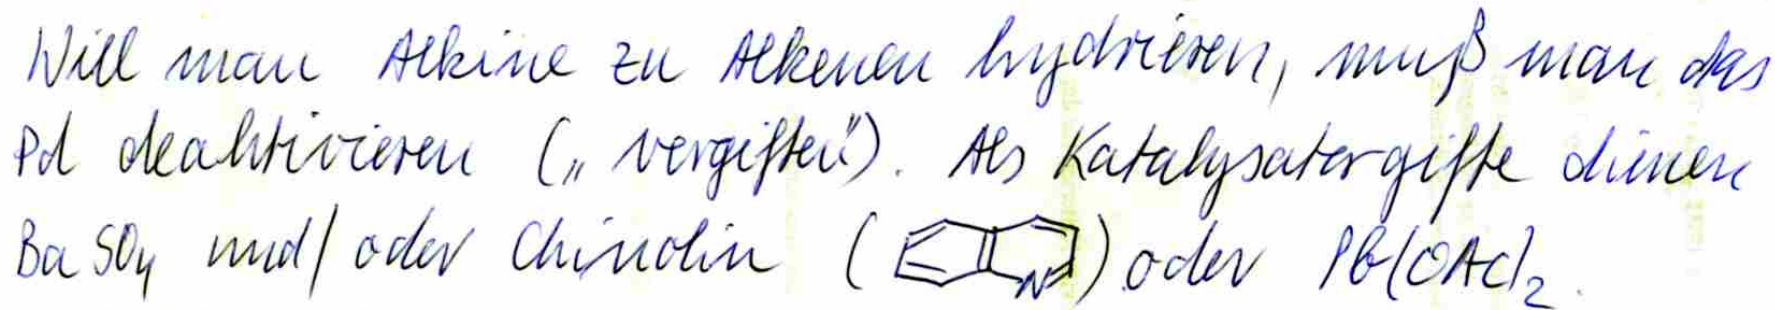 Will man Alkine zu Alkenen hydrieren, muß man das
Pd deaktivieren („vergiften"). Als Katalysatorgifte dienen
BaSO₄ und/oder Chinolin (N) oder Pb(OAc)₂.